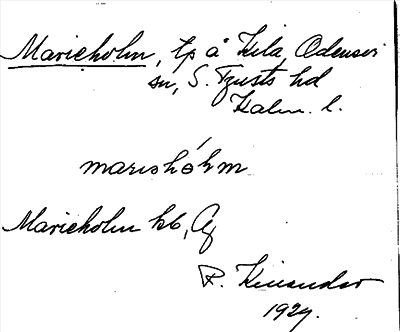 Marieholm, tp å Kila, Odensvi
sn, S. Tjusts hd
Kalm. l.
marishólm
Marieholm kb, G
R. Kinander
1929.